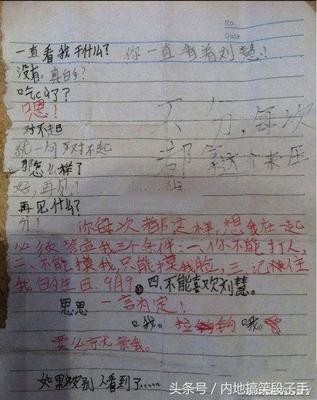 No.
Date
一直看我干什么？ 你一直看着刘慧！
没有。真的？
吃醋了？
嗯！
对不起
就一句对不起
那怎么样了
好，再见！
再见什么？
分！
不分，每次
都拿这个来压
你每次都这样，想我在一起
必须答应我三个条件：一、你不能打人，
二、不能摸我，只能摸我脸，三、记住
我的生日9月9。四、不能喜欢刘慧。
思思 一言为定！
哦。拉钩 哦。
要公布无亲我。
如果被别人看到了……
头条号 / 内地搞笑段子手